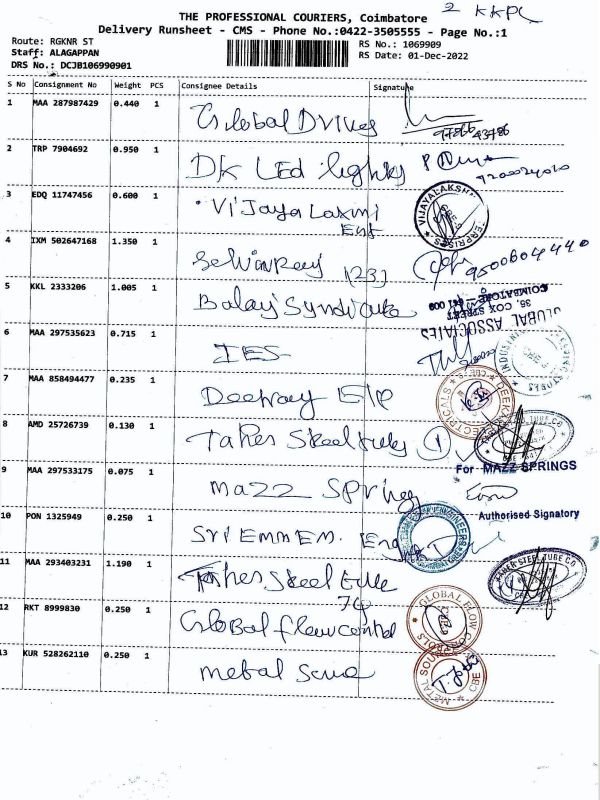 THE PROFESSIONAL COURIERS, Coimbatore
2 KKPL
Delivery Runsheet - CMS - Phone No.:0422-3505555 - Page No.:1
Route: RGKNR ST
RS No.: 1069909
Staff: ALAGAPPAN
RS Date: 01-Dec-2022
DRS No.: DCJB106990901
S No Consignment No Weight PCS Consignee Details Signature
1 MAA 287987429 0.440 1 Global Drives
2 TRP 7904692 0.950 1 DK Led lights
3 EDQ 11747456 0.600 1 Vijaya Laxmi
Ent
VIJAYALAKSHMI ENTERPRISES
4 IXM 502647168 1.350 1 (23)
9500604440
5 KKL 2333206 1.005 1 Balaji Syndicate
GLOBAL ASSOCIATES
35, COX STREET
COIMBATORE 641 009
6 MAA 297535623 0.715 1 IES
7 MAA 858494477 0.235 1
8 AMD 25726739 0.130 1 Taher Steel tubes
9 MAA 297533175 0.075 1 Mazz Spring
For MAZZ SPRINGS
Authorised Signatory
10 PON 1325949 0.250 1 Sri EMM EM. Eng
11 MAA 293403231 1.190 1 Taher Steel tube
74
TAHER STEEL TUBE CO
12 RKT 8999830 0.250 1 Global flow control
GLOBAL FLOW CONTROLS
13 KUR 528262110 0.250 1 Metal
METAL SOURCE CBE